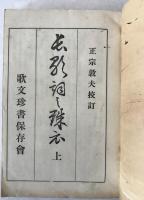 正宗敦夫校訂
長歌詞之珠衣 上
歌文珍書保存會